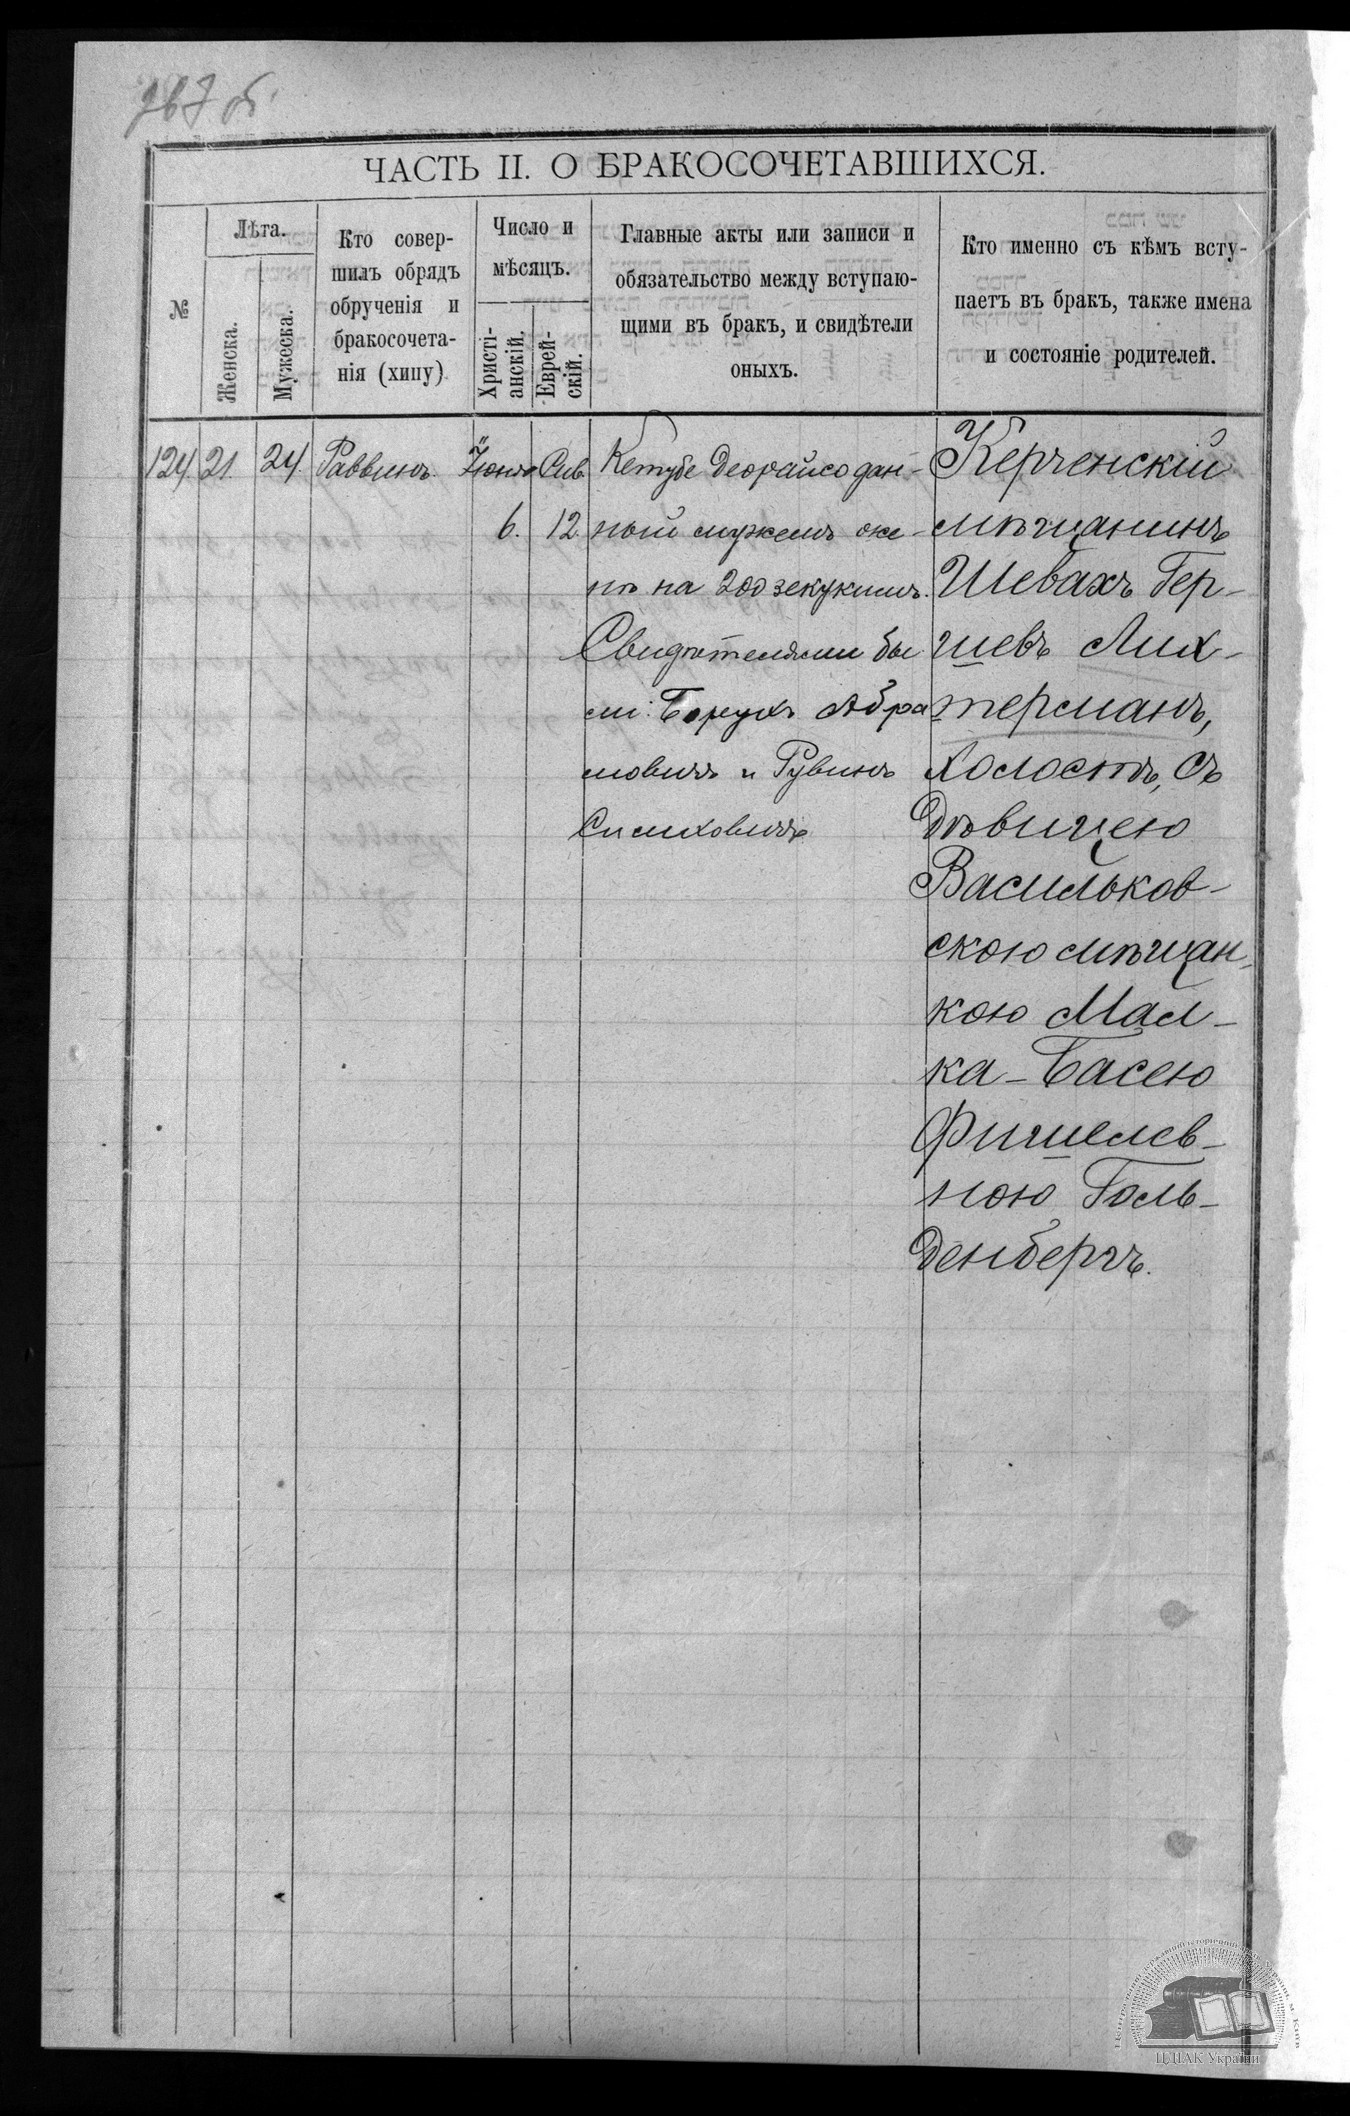 ЧАСТЬ II. О БРАКОСОЧЕТАВШИХСЯ.
№
Лѣта.
Женска.
Мужеска.
Кто совер-
шилъ обрядъ
обрученія и
бракосочета-
нія (хипу)
Число и
мѣсяцъ.
Христі-
анскій.
Еврей-
скій.
Главные акты или записи и
обязательство между вступаю-
щими въ бракъ, и свидѣтели
оныхъ.
Кто именно съ кѣмъ всту-
паетъ въ бракъ, также имена
и состояніе родителей.
124. 21. 24. Раввинъ. Іюня Сив.
6. 12.
Кетубе деорайсо дан-
ный мужемъ же-
нѣ на 200 зекукимъ.
Свидѣтелями бы
ли: Борухъ Абра
мовичъ и Рувинъ
Симховичъ
Керченскій
мѣщанинъ
Шевахъ Гер-
шевъ Лих-
терманъ,
холостъ, съ
дѣвицею
Васильков-
скою мѣщан-
кою Мал-
ка-Басею
Фишелев-
ною Голь-
денбергъ.
ЦДІАК України